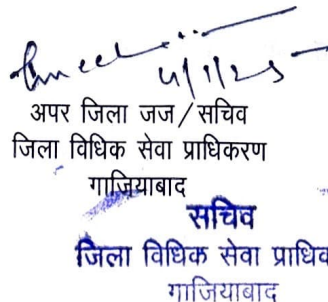 4/1/25
अपर जिला जज/सचिव
जिला विधिक सेवा प्राधिकरण
गाजियाबाद
सचिव
जिला विधिक सेवा प्राधिक
गाजियाबाद